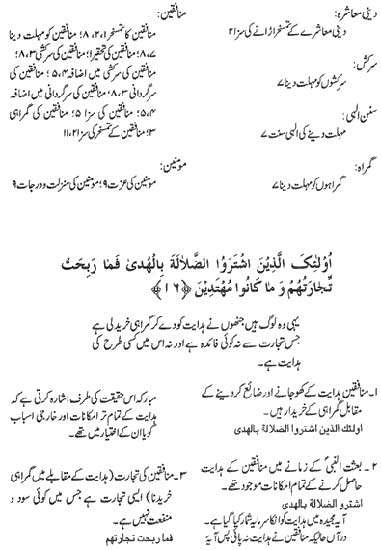 دینی معاشرہ:
دینی معاشرے کے تمسخر اڑانے کی سزا ۲
سرکش:
سرکشوں کو مہلت دینا ۷
سنن الہی:
مہلت دینے کی الہی سنت ۷
گمراہ:
گمراہوں کو مہلت دینا ۷
منافقین:
منافقین کا تمسخر ۱، ۲، ۸؛ منافقین کو مہلت دینا
۷، ۸؛ منافقین کی تحقیر ۱؛ منافقین کی سرکشی ۳، ۸؛
منافقین کی سرکشی میں اضافہ ۴، ۵؛ منافقین کی
سرگردانی ۳، ۸؛ منافقین کی سرگردانی میں اضافہ
۴، ۵؛ منافقین کی سزا ۵؛ منافقین کی گمراہی
۳؛ منافقین کے تمسخر کی سزا ۲، ۱۱
مؤمنین:
مؤمنین کی عزت ۹؛ مؤمنین کی منزلت و درجات ۹
أُوْلَئِكَ الَّذِينَ اشْتَرَوُا الضَّلاَلَةَ بِالْهُدَى فَمَا رَبِحَتْ
تِّجَارَتُهُمْ وَ مَا كَانُوا مُهْتَدِينَ ﴿۱۶﴾
یہی وہ لوگ ہیں جنھوں نے ہدایت کو دے کر گمراہی خرید لی ہے
جس تجارت سے نہ کوئی فائدہ ہے اور نہ اس میں کسی طرح کی
ہدایت ہے۔
۱۔ منافقین ہدایت کے کھو جانے اور ضائع کر دینے کے
مقابل گمراہی کے خریدار ہیں۔
اولئک الذین اشتروا الضلالة بالهدى
۲ ۔ بعثت النبیؐ کے زمانے میں منافقین کے ہدایت
حاصل کرنے کے تمام امکانات موجود تھے۔
اشتروا الضلالة بالهدى
آیہ مجیدہ میں ہدایت کو انکا سرمایہ شمار کیا گیا ہے۔
در آں حالیکہ منافقین نے ہدایت نہ پائی پس آیہ
مبارکہ اس حقیقت کی طرف اشارہ کرتی ہے کہ
ہدایت کے تمام تر امکانات اور خارجی اسباب
گویا ان کے اختیار میں تھے۔
۳۔ منافقین کی تجارت (ہدایت کے مقابلے میں گمراہی
خریدنا) ایسی تجارت ہے جس میں کوئی سود و
منفعت نہیں ہے۔
فما ربحت تجارتهم